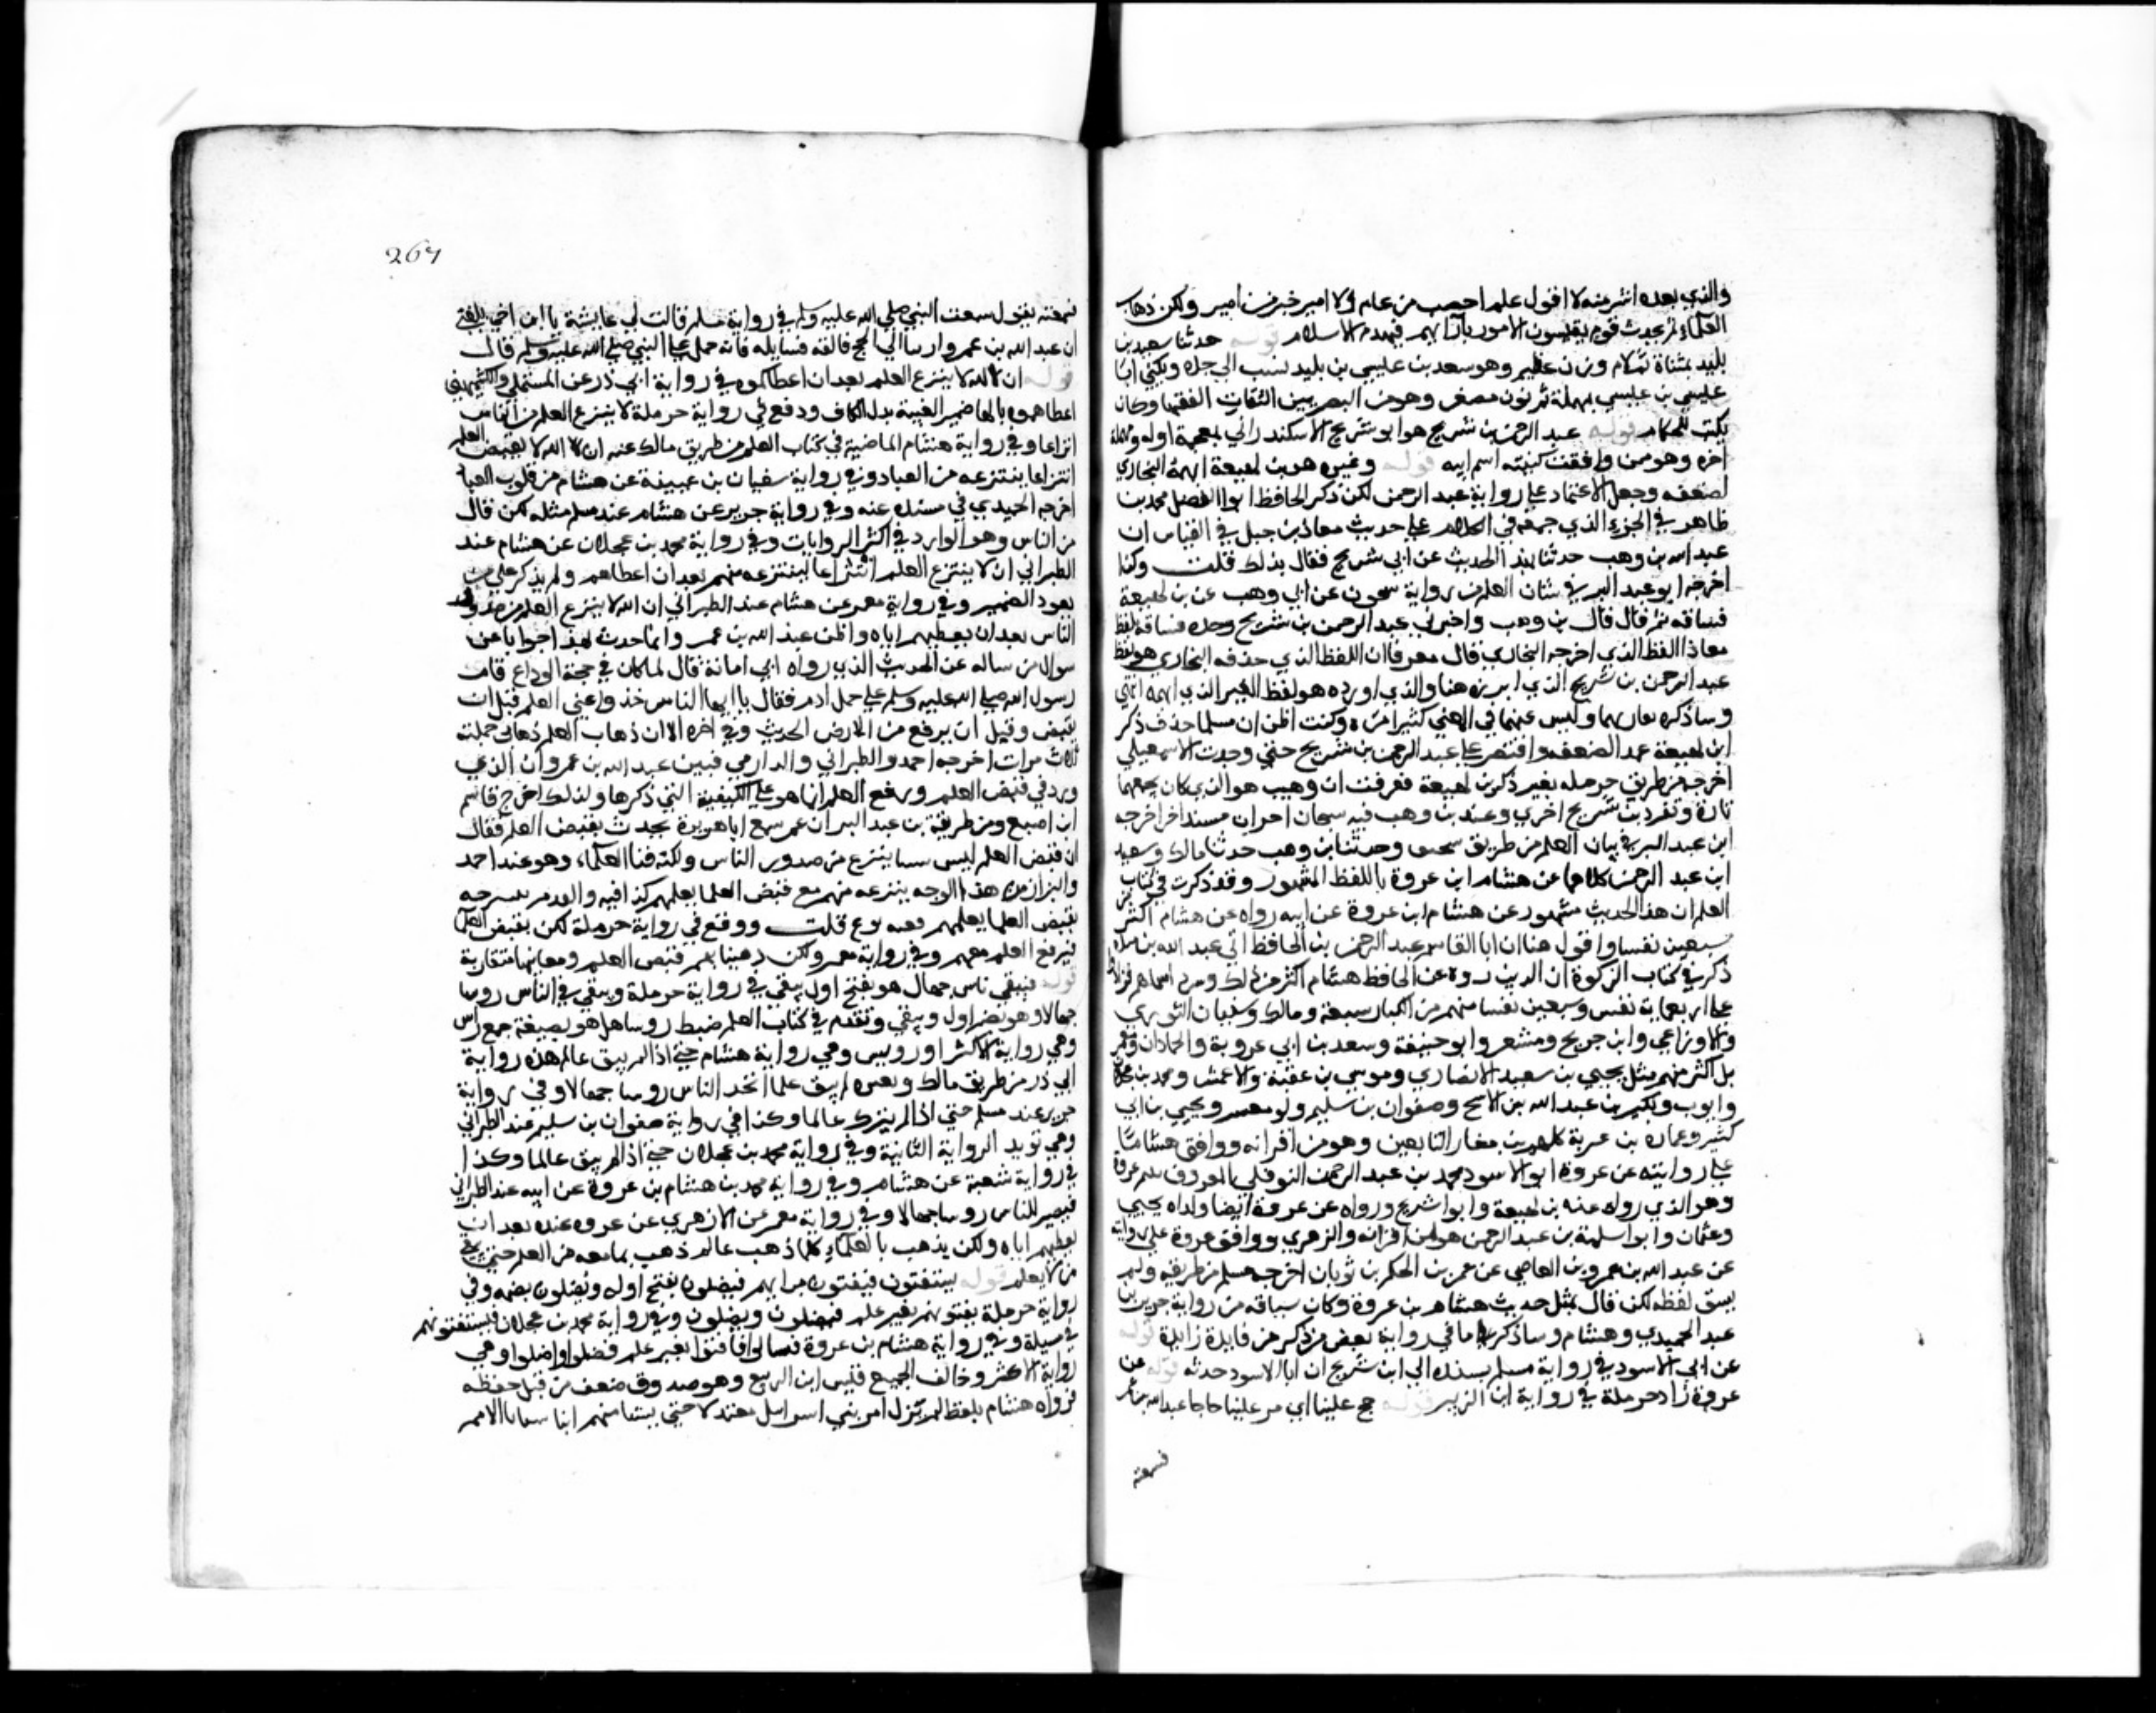 والذي بعده اشر منه لا اقول علم اخصب من عام ولا امير خير من امير ولكن ذهاب
العلماء ثم يحدث قوم يقيسون الامور بآرائهم فيهدم الاسلام قوله حدثنا سعيد بن
بليد بمثناة ثم لام وزن عظيم وهو سعد بن عليسي بن بليد نسب الي جده ويكني ابا
عليسي بن عليسي بمهملة ثم نون مصغر وهو من البصريين الثقات الفقها وكان
يكتب للحكام قوله عبد الرحمن بن شريح هو ابو شريح الاسكندراني بمعجمة اوله ومهملة
اخره وهو ممن وافقت كنيته اسم ابيه قوله وغيره هو بن لهيعة ابهمه البخاري
لضعفه وجعل الاعتماد علي رواية عبد الرحمن لكن ذكر الحافظ ابوا الفضل محمد بن
طاهر في الجزء الذي جمعه في الكلام علي حديث معاذ بن جبل في القياس ان
عبد الله بن وهب حدثنا بهذا الحديث عن ابي شريح فقال بذلك قلت وكذا
اخرجه ابو عبد البر في شان العلم من رواية سحون عن ابي وهب عن بن لهيعة
فساقه ثم قال قال بن وهب واخبرني عبد الرحمن بن شريح وحده فساقه لفظ
معاذ اللفظ الذي اخرجه البخاري قال معرفا ان اللفظ الذي حذفه البخاري هو لفظ
عبد الرحمن بن شريح الذي ابرزه هنا والذي اورده هو لفظ الغير الذي ابهمه انتهي
وساذكره تعارضهما وليس عنهما في المعني كثيرا من ه وكنت اظن ان مسلما حذف ذكر
ابن لهيعة عمد الضعفه واقتصر علي عبد الرحمن بن شريح حتي وجدت الاسمعيلي
اخرجه من طريق حرمله بغير ذكر بن لهيعة فعرفت ان وهب هو الذي كان يجمعهما
تارة وتفرد بن شريح اخري وعند بن وهب فيه سحان احران مسندا خرا اخرجه
ابن عبد البر في بيان العلم من طريق سحنون وحدثنا بن وهب حدثنا مالك وسعيد
ابن عبد الرحمن كلاهما عن هشام ابن عروة باللفظ المشهور وقد ذكرت في كتاب
العلم ان هذا الحديث مشهور عن هشام ابن عروة عن ابيه رواه عن هشام اكثر من
سبعين نفسا واقول هنا ان ابا القاسم عبد الرحمن بن الحافظ ابي عبد الله بن منده
ذكر في كتاب الزكوة ان الذين رووه عن الحافظ هشام اكثر من ذلك وسرد اسماهم فزاد
علي اربعماية نفس وسبعين نفسا منهم من الكبار سبعة ومالك وسفيان الثوري
والاوزاعي وابن جريج ومشعر وابو حنيفة وسعد بن ابي عروبة والحمادان ومعمر
بل اكثر منهم مثل يحيي بن سعيد الانصاري وموسي بن عقبة والاعمش ومحمد بن عجلان
وايوب وبكير بن عبد الله بن الاشج وصفوان بن سليم وابو معشر ويحيي بن ابي
كثير وعمارة بن عرية كلهم من صغار التابعين وهو من اقرانه ووافق هشاما
علي روايته عن عروة ابو الاسود محمد بن عبد الرحمن النوفلي المعروف بيتيم عروة
وهو الذي رواه عنه بن لهيعة وابوا شريح ورواه عن عروة ايضا ولداه يحيي
وعثمان وابوا سلمة بن عبد الرحمن هو من اقرانه والزهري ووافق عروة علي روايته
عن عبد الله بن عمرو بن العاصي عن عمر بن الحكم بن ثوبان اخرجه مسلم من طريقه ولم
يسق لفظه لكن قال بمثل حديث هشام بن عروة وكان سياقه من رواية جرير بن
عبد الحميدي وهشام وساذكر ما في رواية بعض من ذكر من فايدة زايدة قوله
عن ابي الاسود في رواية مسلم بسنده الي ابن شريح ان ابا الاسود حدثه قوله عن
عروة زاد حرملة في رواية ابن الزبير قوله حج علينا اي مر علينا حاجا عبد الله بن عمر
فسمعته
267
فسمعته يقول سمعت النبي صلي الله عليه وسلم في رواية مسلم قالت لي عايشة يا ابن اخي بلغني
ان عبد الله بن عمرو ارسا الي الحج فالقه فسايله فانه حمل علي النبي صلي الله عليه وسلم قال
قوله ان الله لا ينزع العلم بعد ان اعطاكموه في رواية ابي ذر عن المستملي والكشميهني
اعطاهموه بالهاء ضمير الغيبة بدل الكاف ودفع في رواية حرملة لا ينزع العلم من الناس
انتزاعا وفي رواية هشام الماضية في كتاب العلم من طريق مالك عنه ان الله لا يقبض العلم
انتزاعا ينتزعه من العباد وفي رواية سفيان بن عيينة عن هشام من قلوب العباد
اخرجه الحميدي في مسنده عنه وفي رواية جرير عن هشام عند مسلم مثله لكن قال
من الناس وهو الوارد في اكثر الروايات وفي رواية محمد بن عجلان عن هشام عند
الطبراني ان لا ينتزع العلم انتزاعا لينتزعه منهم بعد ان اعطاهم ولم يذكر علي من
يعود الضمير وفي رواية معمر عن هشام عند الطبراني ان الله لا ينزع العلم من صدور
الناس بعد ان يعطيهم اياه واظن عبد الله بن عمر وانما حدث بهذا جوابا عن
سوال من ساله عن الحديث الذي رواه ابي امامة قال لما كان في حجة الوداع قام
رسول الله صلي الله عليه وسلم علي جمل ادم فقال يا ايها الناس خذوا عني العلم قبل ان
يقبض وقيل ان يرفع من الارض الحديث وفي اخره الا ان ذهاب العلم ذهاب حملته
ثلاث مرات اخرجه احمد والطبراني والدارمي فبين عبد الله بن عمرو ان الذي
ورد في قبض العلم ورفع العلم انما هو علي الكيفية التي ذكرها ولذلك اخرج قاسم
ابن اصبغ ومن طريقة بن عبد البر ان عمر سمع ابا هريرة يحدث بقبض العلم فقال
ان قبض العلم ليس سببا ينزع من صدور الناس ولكنه فنا العلماء وهو عند احمد
والبزار من هذا الوجه ينتزعه منهم مع قبض العلما بعلمهم كذا فيه
يقبض العلما بعلمهم قلت ووقع في رواية حرملة لكن يقبض العلما
فيرفع العلم معهم وفي رواية معمر ولكن ذهبنا بهم قبض العلم ومعانيها متقاربة
قوله فيبقي ناس جهال هو بفتح اول يبقي في رواية حرملة ويبقي في الناس روسا
جهالا وهو بضم اول ويبقي وتقدم في كتاب العلم ضبط روسا هل هو بصيغة جمع راس
وهي رواية الاكثر او رويس وهي رواية هشام حتي اذا لم يبق عالم هذه رواية
ابي ذر من طريق مالك وبغيره لم يبق علما اتخذ الناس روسا جهالا وفي رواية
جرير عند مسلم حتي اذا لم يترك عالما وكذا في رواية صفوان بن سليم عند الطبراني
وهي تويد الرواية الثانية وفي رواية محمد بن عجلان حتي اذا لم يبق عالما وكذا
في رواية شعبة عن هشام وفي رواية محمد بن هشام بن عروة عن ابيه عند الطبراني
فيصير للناس روسا جهالا وفي رواية معمر عن الزهري عن عروة عنده بعد ان
يعطيهم اياه ولكن يذهب بالعلماء كلما ذهب عالم ذهب بما معه من العلم حتي يبقي
من لا يعلم قوله يستفتون فيفتون برايهم فيضلون بفتح اوله ويضلون بضمه وفي
رواية حرملة يفتونهم بغير علم فيضلون ويضلون وفي رواية محمد بن عجلان فيستفتونهم
في رواية هشام بن عروة فسالوا فافتوا بغير علم فضلوا واضلوا وهي
رواية الاكثر وخالف الجميع قيس ابن الربيع وهو صدوق ضعف من قبل حفظه
فرواه هشام بلفظ لم يزل امر بني اسرايل معتدلا حتي بنشا منهم ابنا سبايا الامم